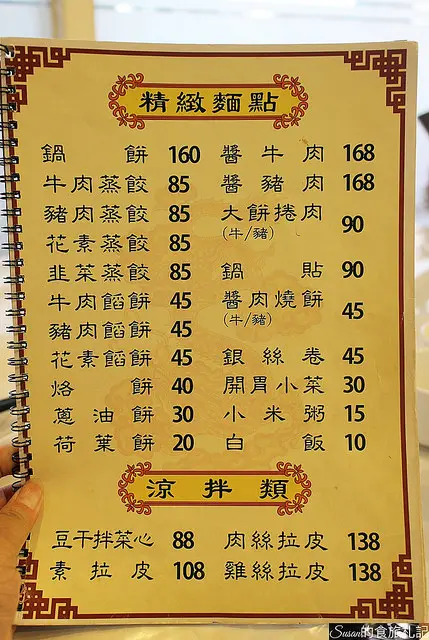 精緻麵點
鍋餅 160
牛肉蒸餃 85
豬肉蒸餃 85
花素蒸餃 85
韭菜蒸餃 85
牛肉餡餅 45
豬肉餡餅 45
花素餡餅 45
烙餅 40
蔥油餅 30
荷葉餅 20
醬牛肉 168
醬豬肉 168
大餅捲肉 90
(牛/豬)
鍋貼 90
醬肉燒餅 45
(牛/豬)
銀絲卷 45
開胃小菜 30
小米粥 15
白飯 10
涼拌類
豆干拌菜心 88
素拉皮 108
肉絲拉皮 138
雞絲拉皮 138
Susan的食旅札記